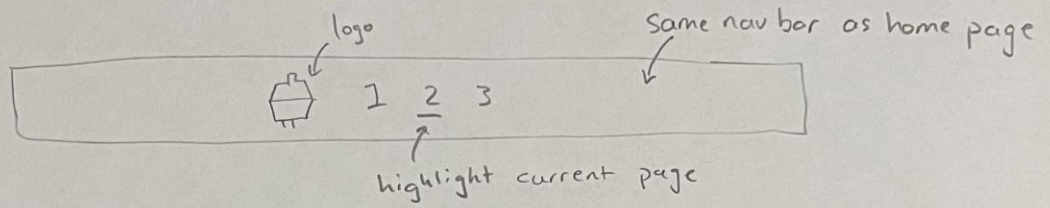 logo
same nav bar as home page
1 2 3
highlight current page